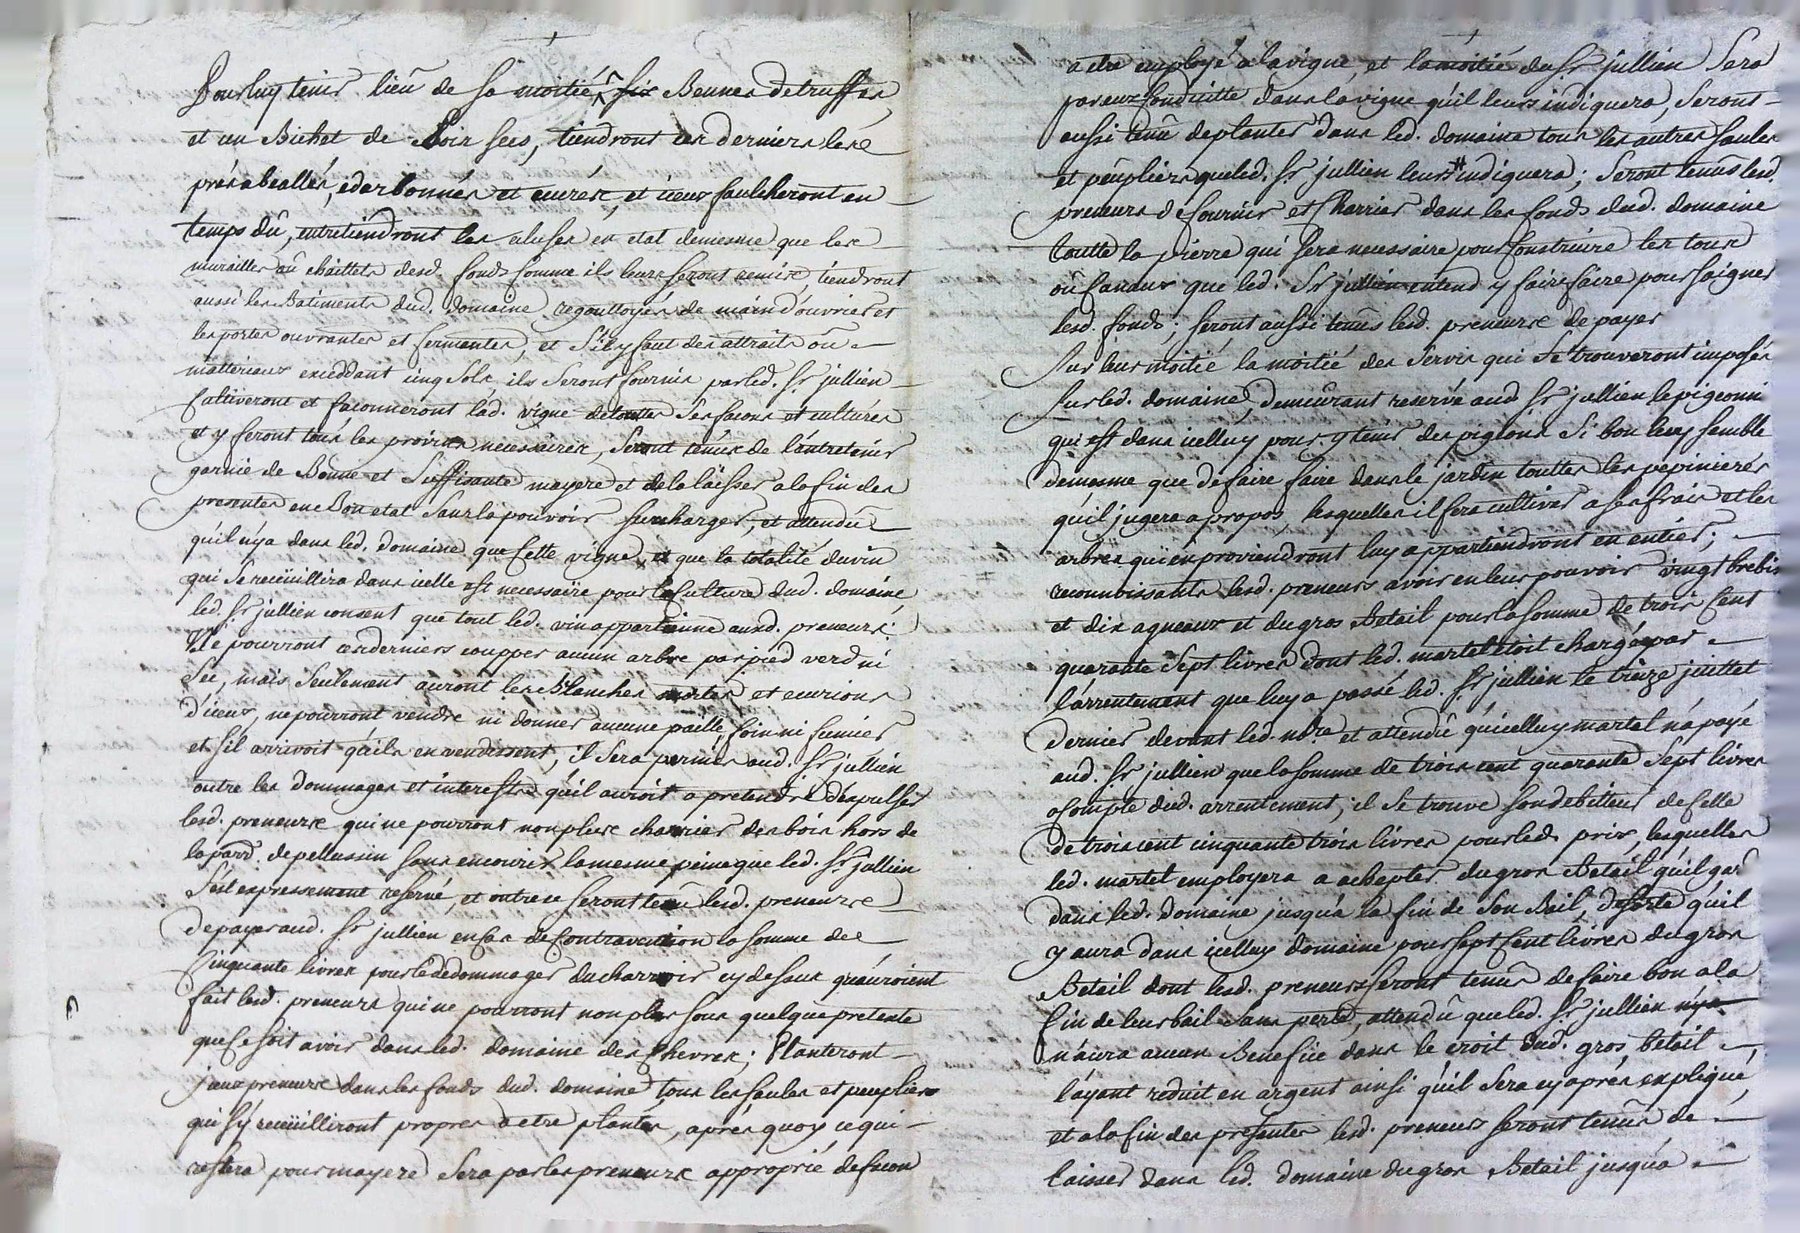 Pour luy tenir lieû de sa moitié, six Bennes de truffes,
et un Bichet de pois secs, tiendront ces derniers les
prés abeallés, et eurés, et iceux faulcheront en
temps dû, entretiendront les écluses en etat de mesme que les
murailles où chaittets desd. fonds comme ils leurs seront remis, tiendront
aussi les Batiments dud. Domaine regouttoyés de main d'ouvrier et
les portes ouvrantes et fermantes, et S'il y faut des attraits oû
matteriaux exceddant cinq Sols, ils Seront fournis par led. Sr. jullien
Cultiveront et façonneront lad. vigne de touttes Ses façons et cultures
et y feront tous les provins necessaires, Seront tenûs de l'entretenir
garnie de Bonne et Suffisante mayere et de la laisser a la fin des
presentes en Bon etat Sans la pouvoir surcharger, et attendû
qu'il n'y a dans led. domaine que cette vigne et que la totalité du vin
qui Se recüeillira dans icelle est necessaire pour la Culture dud. domaine,
led. Sr. jullien consent que tout led. vin appartienne auxd. preneurs;
Ne pourront ces derniers coupper aucun arbre par pied verd ni
Sec, mais Seulement auront les Blanches mortes et ecurions
d'iceux, ne pourront vendre ni donner aucune paille, foin ni fumier
et S'il arrivoit qu'ils en vendissent, il Sera permis aud. Sr. jullien
outre les dommages et interests qu'il auroit a pretendre d'expulser
lesd. preneurs qui ne pourront non plus charrier des bois hors de
la parr. de pellussin sans encourir la mesme peine que led. Sr. jullien
S'est expressement reservé, et outre ce seront tenû lesd. preneurs
de payer aud. Sr. jullien en cas de contravention la somme de
cinquante livres pour le dédommager du charroir cy dessus qu'auroient
fait lesd. preneurs qui ne pourront non plus sous quelque pretexte
que ce soit avoir dans led. domaine des chevres; Planteront
iceux preneurs dans les fonds dud. domaine tous les saules et peupliers
qui s'y recüeilliront propres a etre plantés, aprés quoy ce qui
restera pour mayere Sera par les preneurs approprié de façon
a etre employé a la vigne, et la moitié du Sr. jullien Sera
par eux Conduitte dans la vigne qu'il leurs indiquera, Seront
aussi tenû de planter dans led. domaine tous les autres saules
et peûpliers que led. Sr. jullien leurs indiquera; Seront tenûs lesd.
preneurs de fournir et Cherrier dans les fonds dud. domaine
toutte la pierre qui Sera necessaire pour Construire les tous
oû canaux que led. Sr. jullien entend y faire faire pour saigner
lesd. fonds; seront aussi tenûs lesd. preneurs de payer
Sur leur moitié la moitié des Servis qui Se trouveront imposés
Sur led. domaine, demeurant reservé aud Sr. jullien le pigeonni
qui est dans icelluy pour y tenir des pigeons Si bon luy semble
de mesme que de faire faire dans le jardin touttes les pepinieres
qu'il jugera a propos, lesquelles il fera cultiver a ses frais et les
arbres qui en proviendront luy appartiendront en entier;
reconnoissants lesd. preneurs avoir en leur pouvoir vingt brebis
et dix agneaux et du gros Betail pour la somme de trois Cent
quarante Sept livres dont led. martel étoit chargé par
l'arrentement que luy a passé led. Sr. jullien le treize juillet
dernier devant led. no.re et attendû qu'icelluy martel n'a payé
aud. Sr. jullien que la somme de trois cent quarante Sept livres
a compte dud. arrentement, il Se trouve son debitteur de Celle
de trois cent cinquante trois livres pour led. prix, lesquelles
led. martel employera a achepter du gros Betail qu'il gar
dans led. domaine jusqu'a la fin de Son Bail, de Sorte qu'il
y aura dans icelluy domaine pour sept Cent livres de gros
Betail dont lesd. preneurs seront tenûs de faire bon a la
fin de leur bail Sans perte, attendû que led. Sr. jullien n'ya
n'aura aucun Benefice dans le croit dud. gros betail
l'ayant reduit en argent ainsi qu'il Sera cy aprés expliqué,
et a la fin des presentes lesd. preneurs seront tenûs de
laisser dans led. domaine du gros Betail jusqu'a